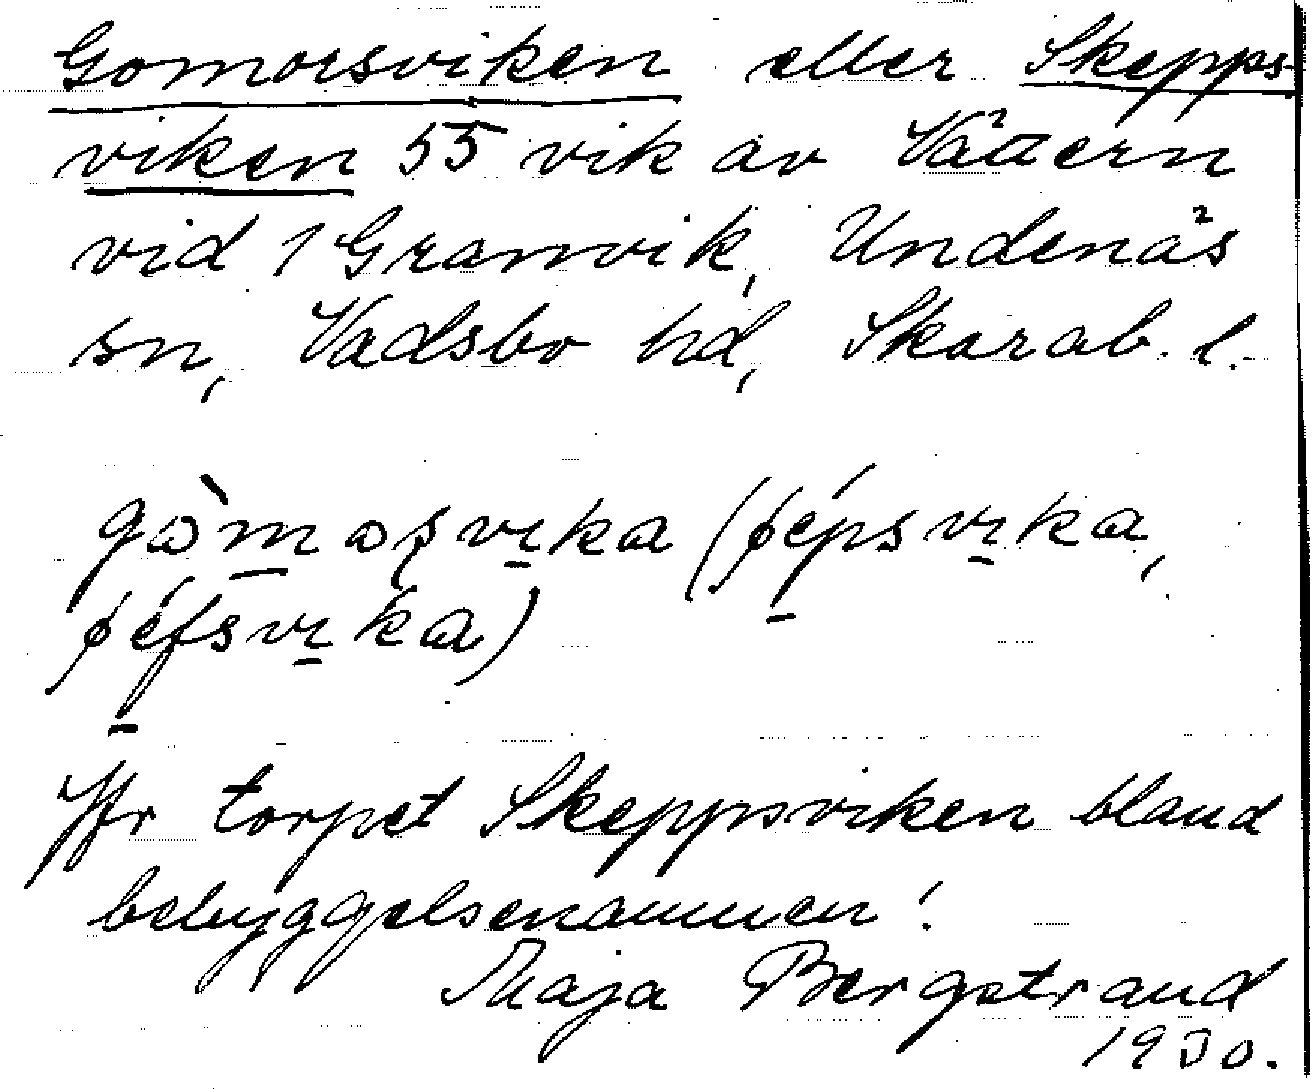 Gomorsviken eller Skepps-
viken 55 vik av Vättern
vid 1 Granvik, Undenäs
sn, Vadsbo hd, Skarab. l.
vika
Jfr torpet Skeppsviken bland
bebyggelsenamnen!
Maja Bergstrand
1930.